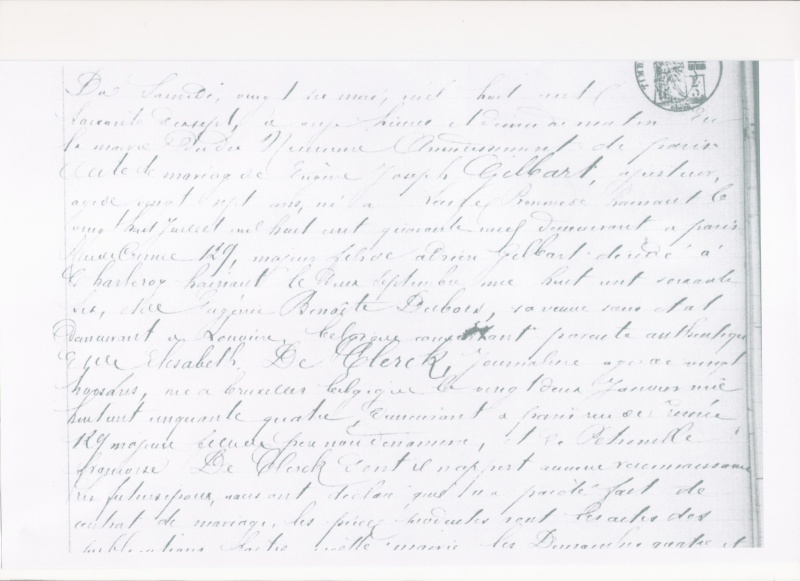 Du Samedi, vingt six mai, mil huit cent
soixante dix sept, à onze heures et demie du matin en
la mairie du dix Neuvième Arrondissement de paris
Acte de mariage de Eugène Joseph Gilbart, ajusteur,
agé de vingt sept ans, né à hainaut le
vingt huit Juillet mil huit cent quarante neuf demeurant à paris
rue de Crimée 129, majeur, fils de adrien Gilbart décédé à
Charleroy hainaut le deux septembre mil huit cent soixante
six, et de Eugénie Benoîte Dubois, sa veuve sans état
demeurant à Belgique consentant par acte authentique
Et de Elisabeth De Clerck, journalière agée de vingt
trois ans, née à bruxelles belgique le vingt deux Janvier mil
huit cent cinquante quatre, demeurant à paris rue de Crimée
129 majeure fille de père non dénommé, et de Petronelle
françoise De Clerck dont il n'appert aucune reconnaissance
Les futurs époux, nous ont déclaré qu'il n'a pas été fait de
contrat de mariage. les pièces produites sont les actes des
publications faites en cette mairie les Dimanches quatre et